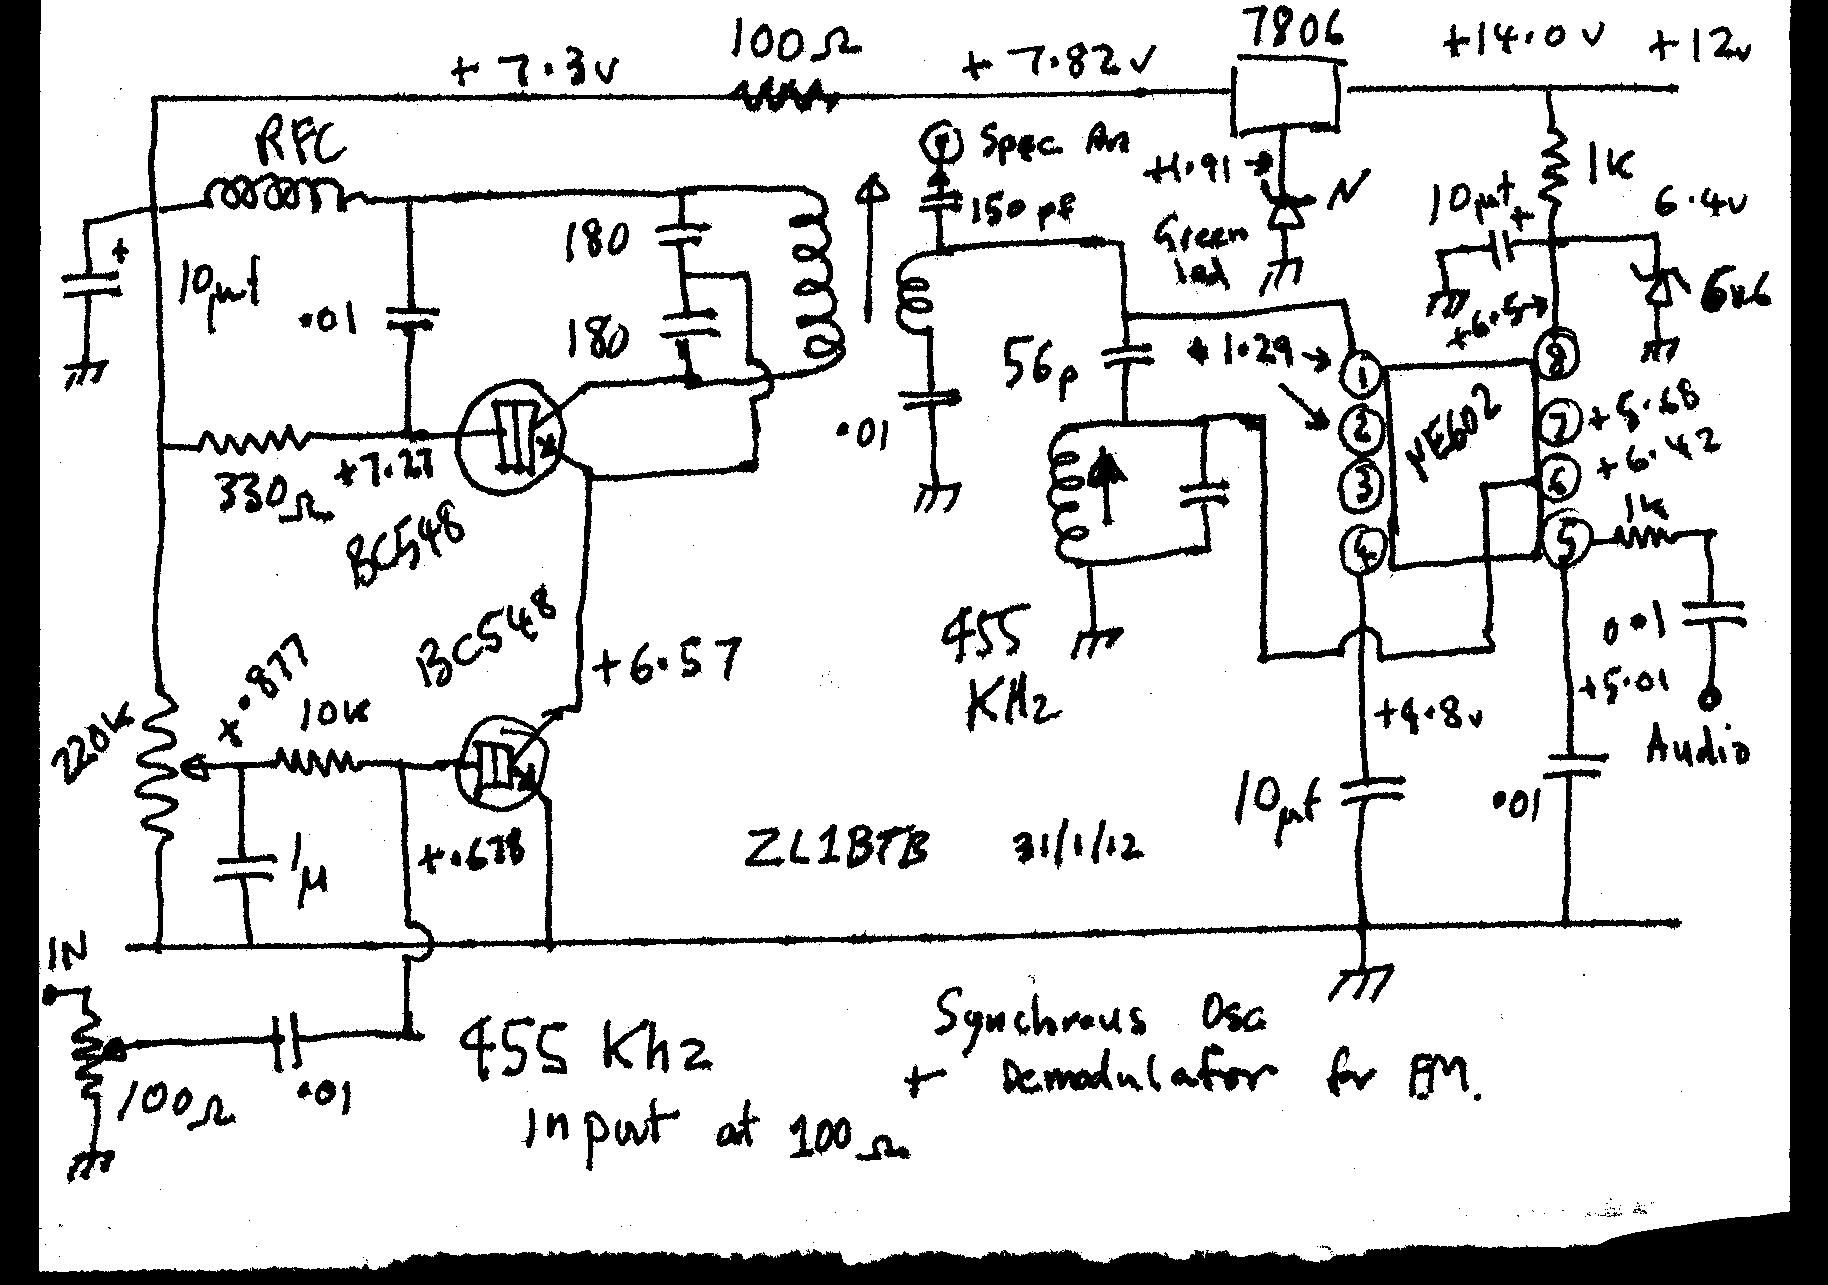 7806
100Ω
+14.0v
+12v
+7.3v
+7.82v
RFC
Spec An
+1.91
1K
150 pf
10µf
+
6.4v
180
Green
led
+
10µf
.01
180
6v6
+6.5
56p
+1.29
1
8
.01
2
NE602
7
+5.68
3
6
+6.42
+7.27
330Ω
BC548
4
5
1K
BC548
455
KHz
0.01
+6.57
+.877
10K
220K
+4.8v
+5.01
Audio
10µf
.01
+.678
1µ
ZL1BTB 31/1/12
IN
Synchrous Osc
+ Demodulator for FM.
455 Khz
100Ω
.01
Input at 100Ω